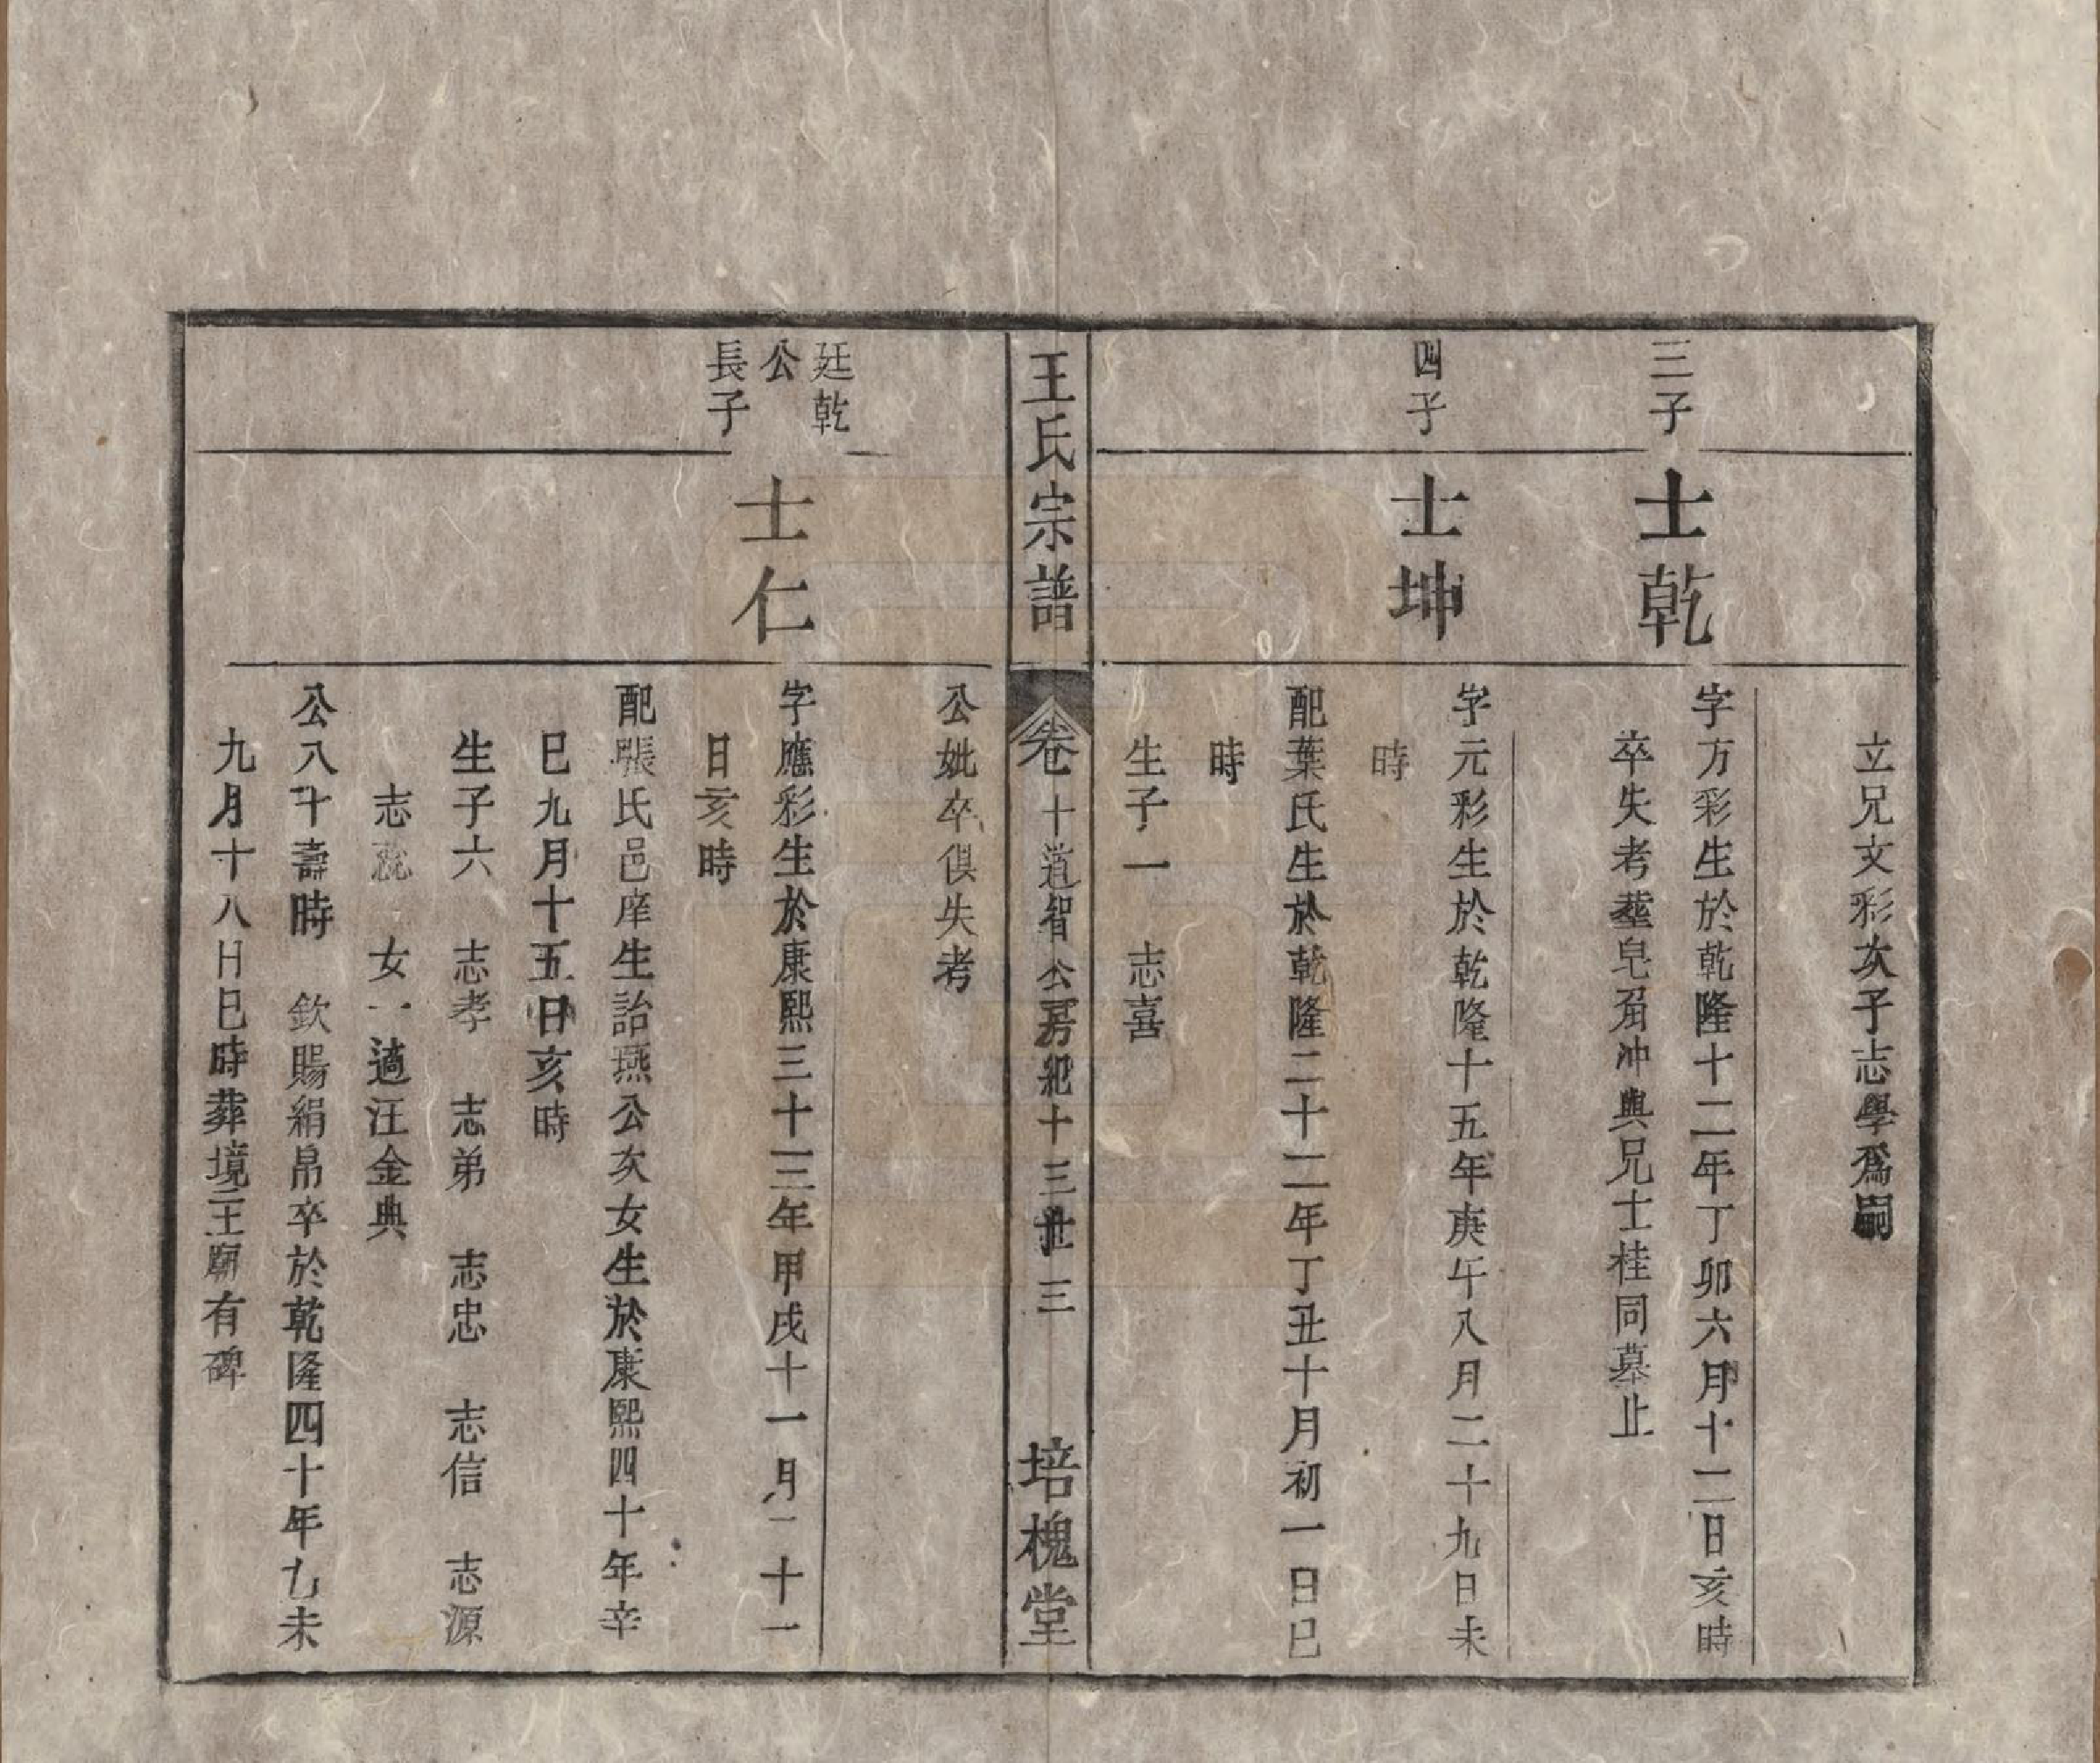 立兄文彩次子志學爲嗣
三子
士乾
字方彩生於乾隆十二年丁卯六月十二日亥時
卒失考葬皂角冲與兄士桂同墓止
四子
士坤
字元彩生於乾隆十五年庚午八月二十九日未
時
配葉氏生於乾隆二十二年丁丑十月初一日巳
時
生子一 志喜
王氏宗譜
卷十道智公房紀十三世 三
培槐堂
公妣卒俱失考
廷乾
公
長子
士仁
字應彩生於康熙三十三年甲戌十一月二十一
日亥時
配張氏邑庠生詒燕公次女生於康熙四十年辛
巳九月十五日亥時
生子六 志孝 志弟 志忠 志信 志源
志 女一適汪金典
公八十壽時 欽賜絹帛卒於乾隆四十年乙未
九月十八日巳時葬境三王廟有碑